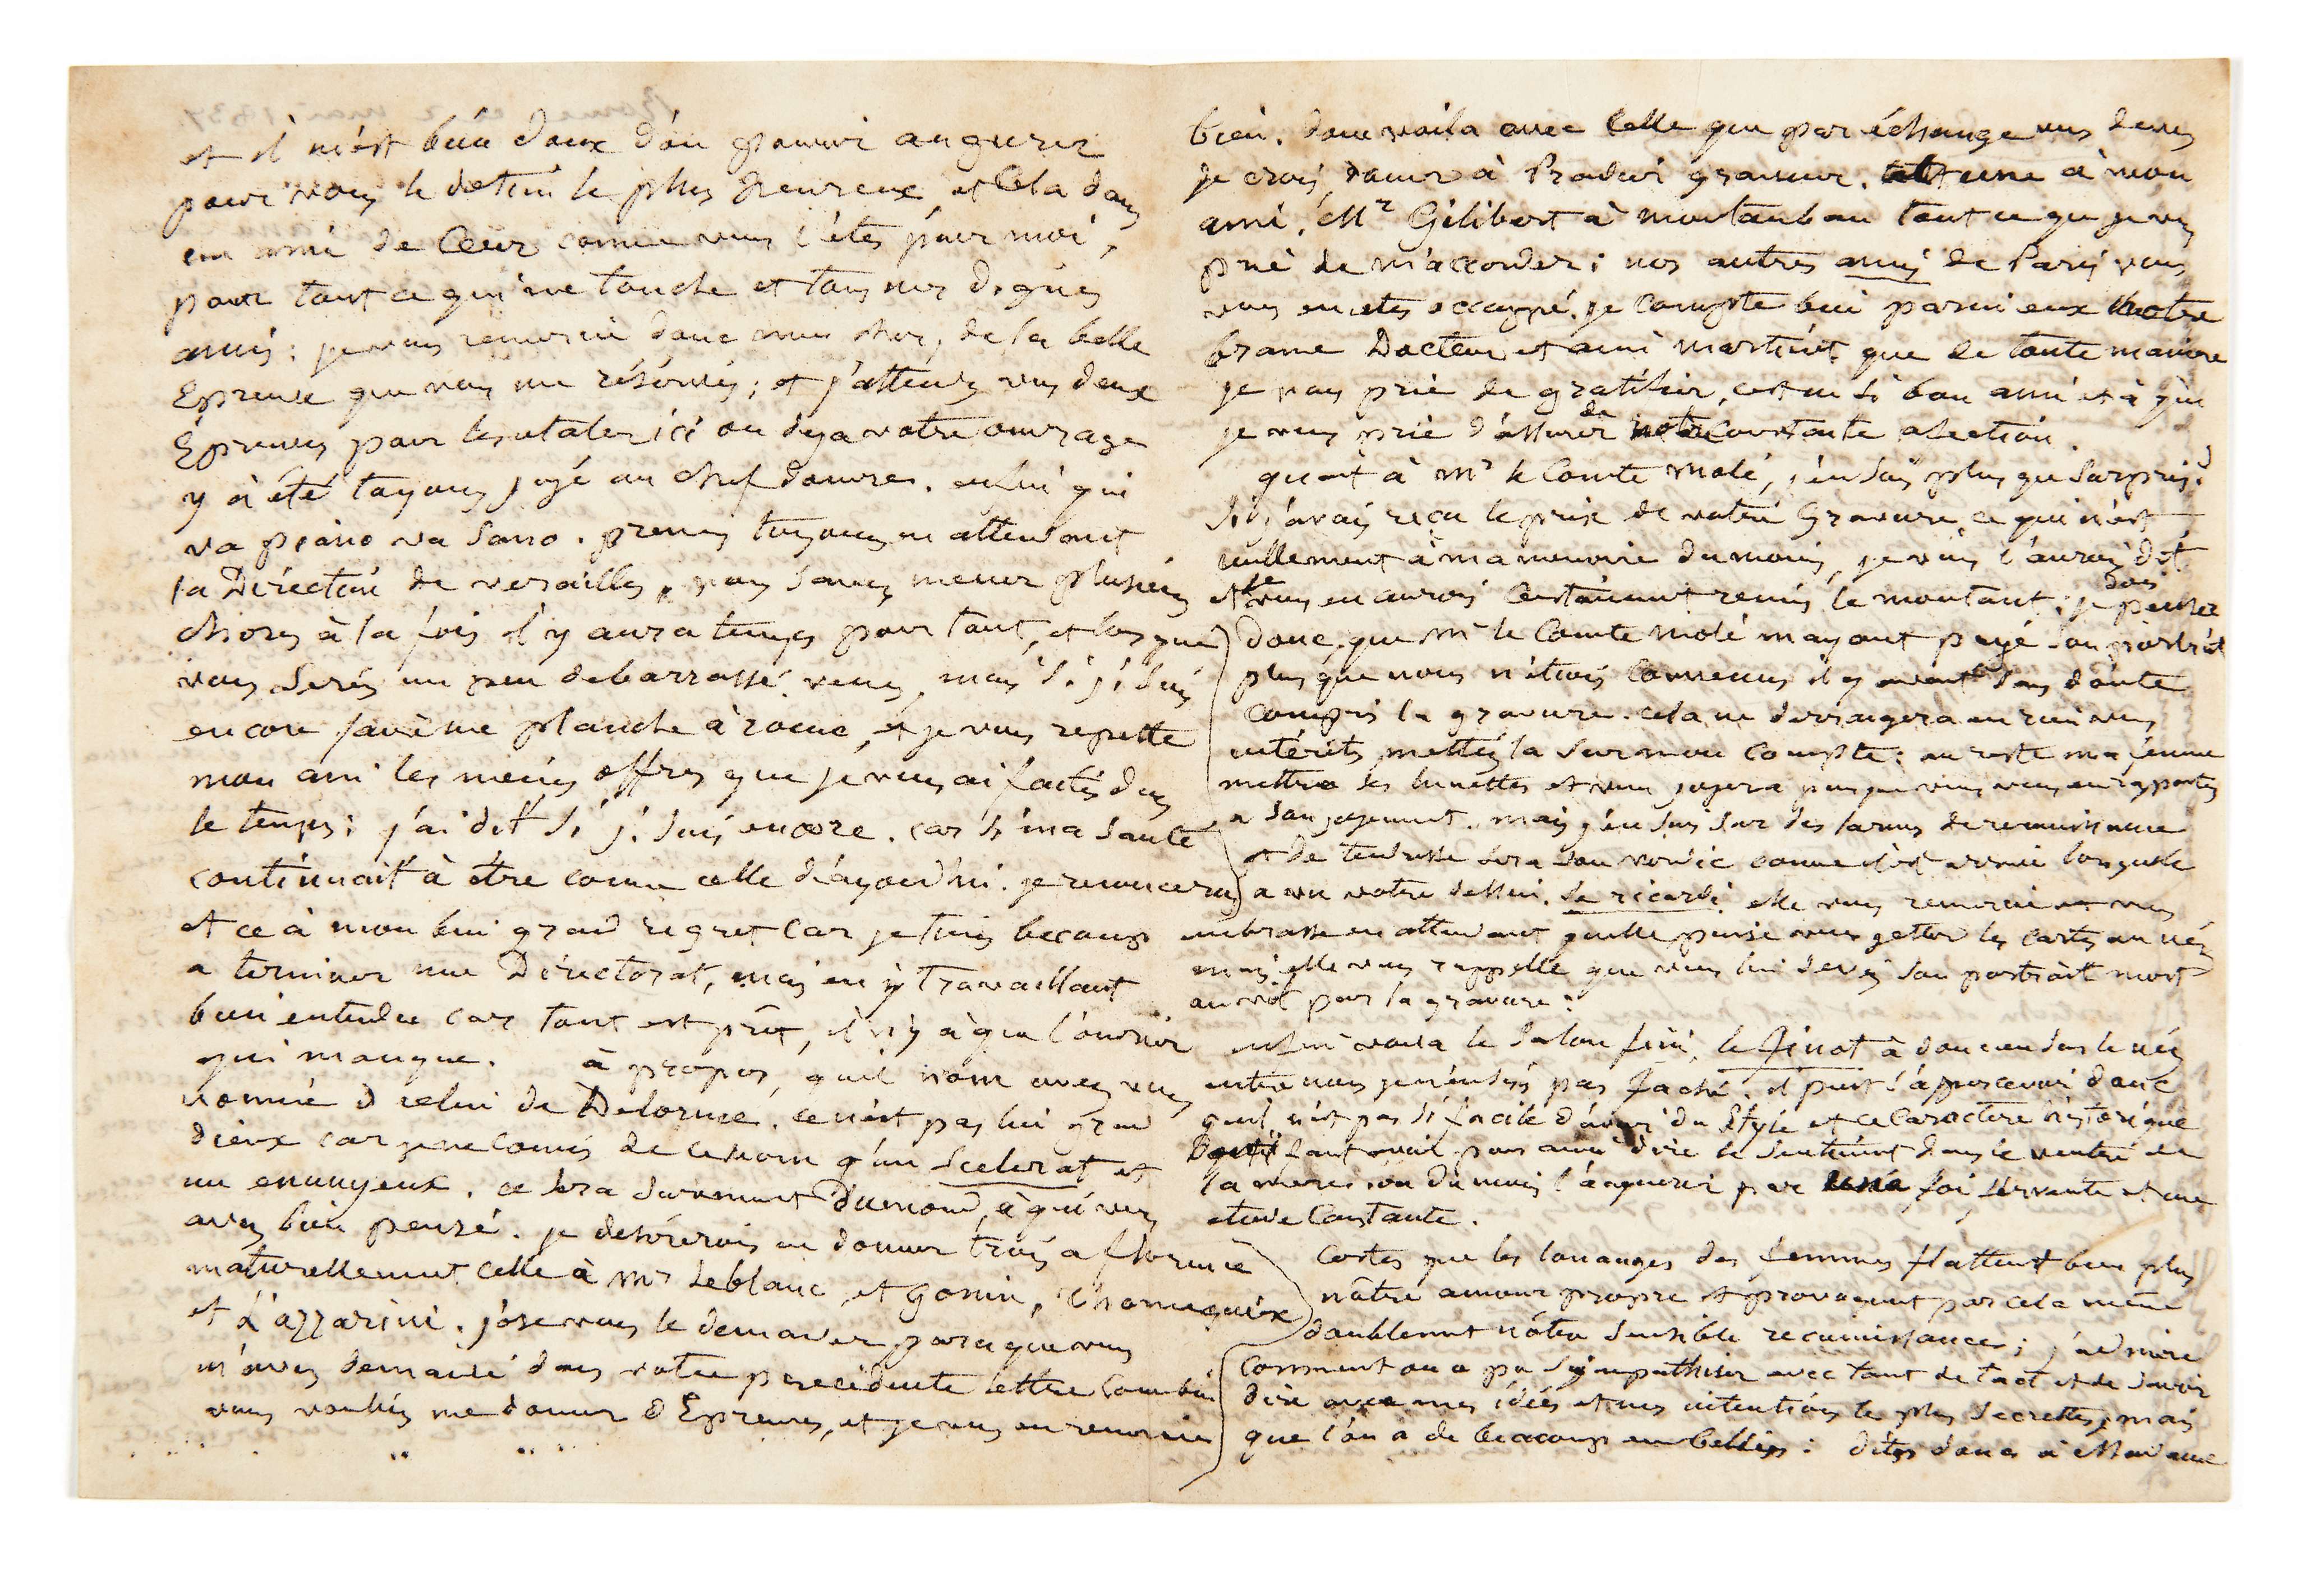 et il m'est bien doux d'en pouvoir augurer
pour vous le destin le plus heureux, et cela dans
un ami de Cœur comme vous l'êtes pour moi,
pour tout ce qui me touche et tous nos dignes
amis: je vous remercie donc mon cher, de la belle
Epreuve que vous me réservés; et j'attends vos deux
Epreuves pour les étaler ici ou deja votre ouvrage
y à été toujours jugé un chef d'œuvre. enfin qui
va piano va sano. prenes toujours en attendant
la Diréction de versailles, vous savez mener plusieurs
choses à la fois il y aura temps pour tout, et lorsque
vous serés un peu debarrassé venés, mais si j'i suis
encore faire une planche à rome, et je vous repette
mon ami les mêmes offres que je vous ai faites dans
le temps: j'ai dit si j'i suis encore. car si ma santé
continuait à être comme celle d'aujourd'hui. je renoncerais
et ce à mon bien grand regret car je tiens becoup
a terminer mon Diréctorat, mais en y travaillant
bien entendu car tout est prêt, il n'y à que l'ouvrier
qui manque. à propos, quel nom avez vous
nommé d celui de Delorme. ce n'est pas lui grand
dieux car je ne connais de ce nom qu'un scelerat et
un ennuyeux. ce sera surement Dumond, à qui vous
avez bien pensé. je desirerois en donner trois a florence
naturellement celle à Mr Leblanc et Gonin, Thomeguéx
et Lazzarini. j'ose vous le demander parceque vous
m'avez demandé dans votre precedente lettre combien
vous voulies me donner d'Epreuves, et je vous en remercie
bien. donc voila avec celle que par échange vous devez
je crois, donner à Pradier graveur. et une à mon
ami, Mr Gilibert à montauban tout ce que je vous
prie de m'accorder: nos autres amis de Paris vous
vous en etes occuppé. je compte bien parmi eux notre
brave Docteur et ami martinet que de toute maniere
je vous prie de gratifier, c'est un si bon ami et à qui
je vous prie d'assurer de notre Constante afection.
quant à Mr le Comte molé, j'en suis plus que surpris.
Si j'avais reçu le prix de votre Gravure, ce qui n'est
nullement à ma memoire du moins, je vous l'aurois dit
et vous en aurois Certainement remis le montant; je dois penser
donc, que Mr le Comte molé m'ayant payé son portrait
plus que nous n'étions convenus il y avait sans doute
compris la gravure. cela ne derrangera en rien vos
intérêts, mettés la sur mon compte: au reste ma femme
mettra ses lunettes et vous jugera puisque vous vous en rapportés
a son jugement. mais j'en suis sur des larmes de reconnoissance
et de tendresse sera son verdic comme c'est arrivé lorsquelle
a vu votre dessin. se ricordi. elle vous remercie et vous
embrasse en attendant quelle puisse vous jetter les cartes au néz
mais elle vous rappelle que vous lui devez son portrait mort
au vif pour la gravure:
enfin voila le salon fini, le Jinot à donc un dessus le néz
entre nous je n'en suis pas faché. il peut s'appercevoir donc
quil n'est pas si facile d'avoir du Style et ce Caractere historique
faut avoir pour ainsi dire le sentiment dans le ventre de
la mere. ou du moins l'acquerir par une foi fervente et une
etude Constante.
Certes que les louanges des femmes flattent bien plus
nôtre amour propre et provoquent par cela même
doublement nôtre sensible reconnoissance; j'admire
comment on a pu sympathiser avec tant de tact et de savoir
dire avec mes idées et mes intentions les plus secrettes, mais
que l'on a de beacoup embellies: dites donc à Madame